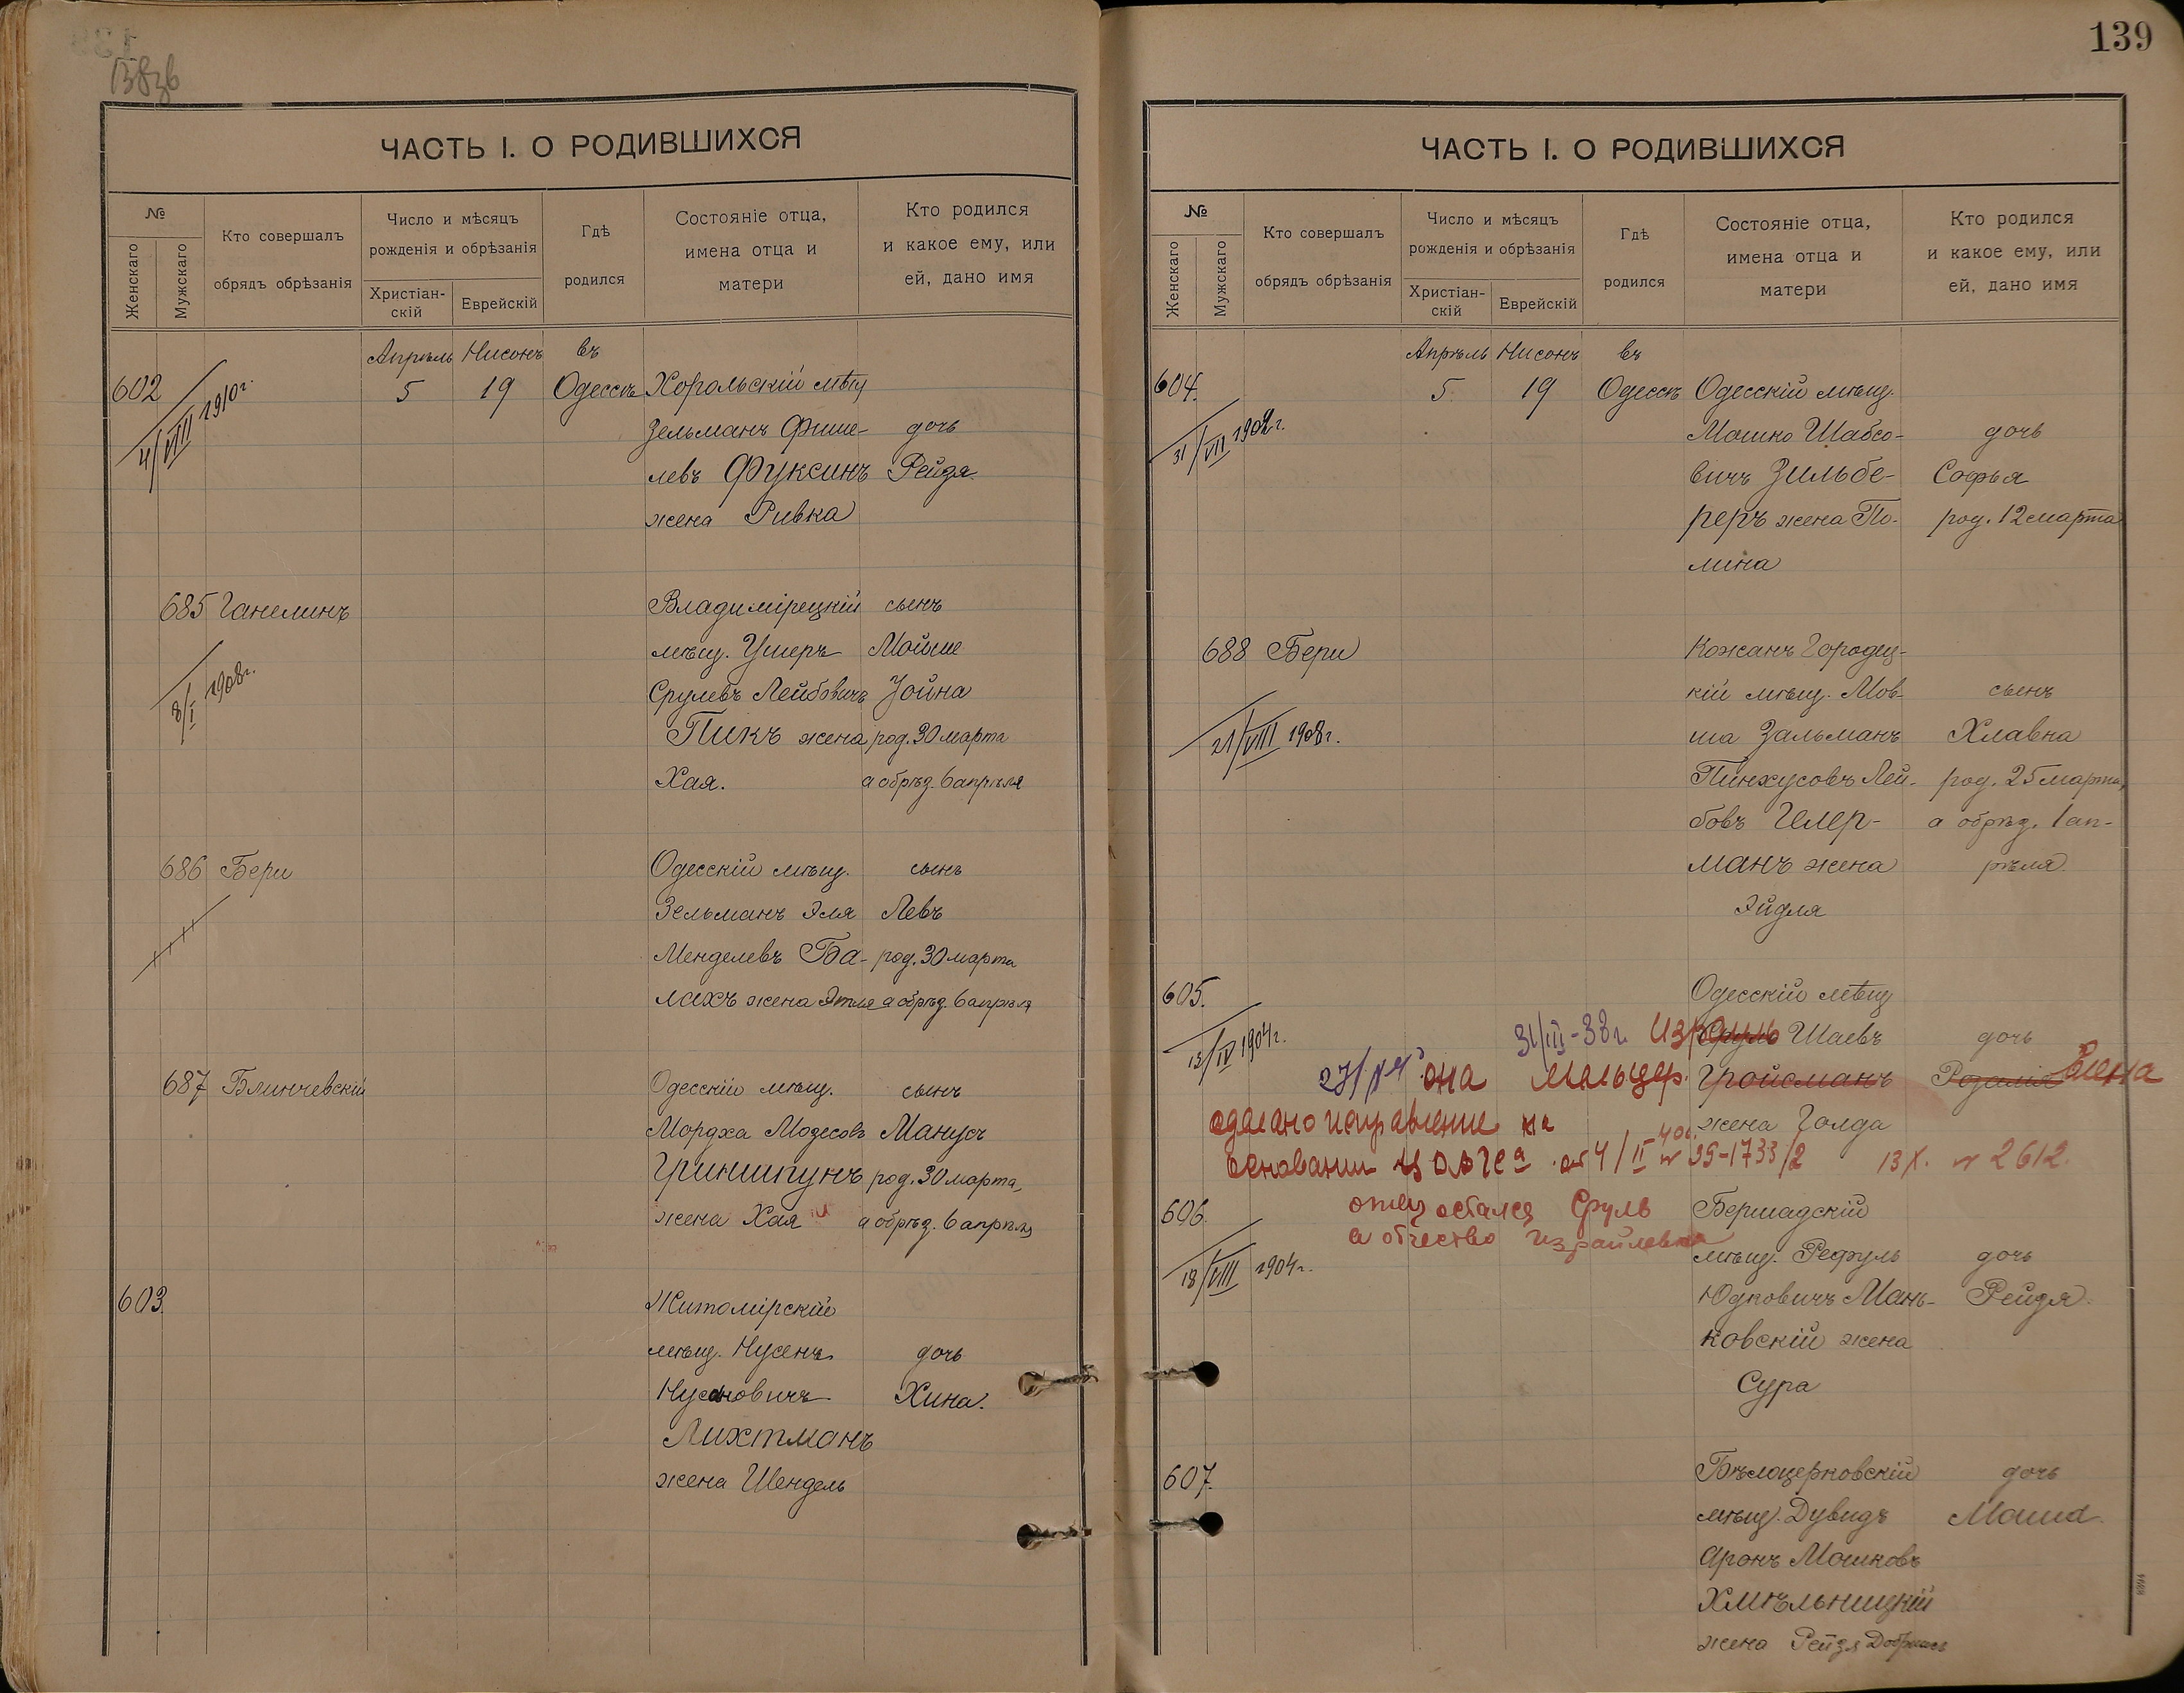 138зв
ЧАСТЬ I. О РОДИВШИХСЯ
№
Женскаго
Мужскаго
Кто совершалъ
обрядъ обрѣзанія
Число и мѣсяцъ
рожденія и обрѣзанія
Христіан-
скій
Еврейскій
Гдѣ
родился
Состояніе отца,
имена отца и
матери
Кто родился
и какое ему, или
ей, дано имя
Апрѣль Нисонъ въ
602 5 19 Одессѣ Хорольскій мѣщ
4/VIII 1910г.
Зельманъ Фише- дочь
левъ Фуксинъ Рейзя.
жена Ривка
685 Ганелинъ Владимірецкій сынъ
мѣщ. Ушеръ Мойше
8/I 1908г.
Срулевъ Лейбовичъ Іойна
Пикъ жена род. 30 марта
Хая. а обрѣз. 6 апрѣля
686 Бери Одесскій мѣщ. сынъ
Зельманъ Эля Левъ
Менделевъ Ба- род. 30 марта
лахъ жена Этля а обрѣз. 6 апрѣля
687 Блинчевскій Одесскій мѣщ. сынъ
Мордха Мозесовъ Манусъ
Гриншпунъ род. 30 марта,
жена Хая а обрѣз. 6 апрѣля
603. Житомірскій
мѣщ. Нусенъ дочь
Нусоновичъ Хина.
Лихтманъ
жена Шендель
139
ЧАСТЬ I. О РОДИВШИХСЯ
№
Женскаго
Мужскаго
Кто совершалъ
обрядъ обрѣзанія
Число и мѣсяцъ
рожденія и обрѣзанія
Христіан-
скій
Еврейскій
Гдѣ
родился
Состояніе отца,
имена отца и
матери
Кто родился
и какое ему, или
ей, дано имя
Апрѣль Нисонъ въ
604. 5. 19 Одессѣ Одесскій мѣщ.
31/VII 1902г.
Мошко Шабсо- дочь
вичъ Зильбе- Софья
реръ жена По- род. 12 марта
лина
688 Бери Кожанъ Городец-
кій мѣщ. Мов- сынъ
21/VIII 1908г.
ша Зальманъ Хлавна
Пинхусовъ Лей- род. 25 марта,
бовъ Гелер- а обрѣз. 1 ап-
манъ жена рѣля.
Эйдля
605. Одесскій мѣщ
13/IV 1904г.
31/III-38г. Сруль Шаевъ дочь
она Мальцер. Гройсманъ Розалія Елена
сделано исправление на жена Голда
основании от 4/II 40г. № 35-1733/2 13/X. № 2612.
отец остался Сруль
а отчество Израилевна
606. Бершадскій
18/VIII 1904г.
мѣщ. Рефуль дочь
Юдковичъ Мань- Рейзя.
ковскій жена
Сура
607. Бѣлоцерковскій дочь
мѣщ. Дувидъ Маша.
Аронъ Мошковъ
Хмѣльницкій
жена Рейзя Добришъ